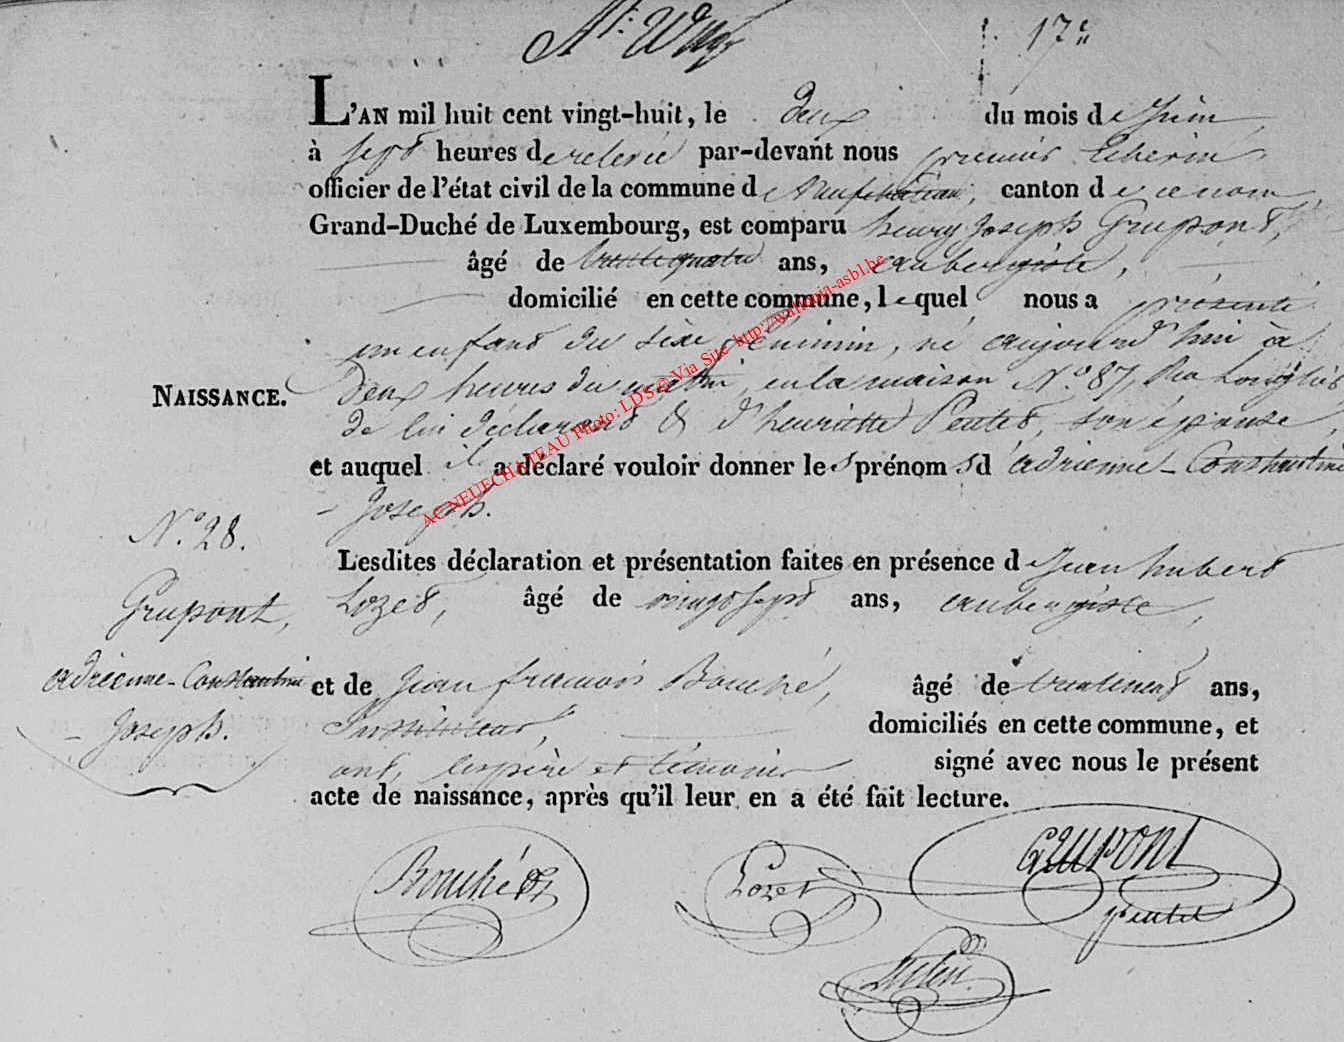 17e
L'AN mil huit cent vingt-huit, le deux du mois de Juin
à sept heures de relevée par-devant nous premier Echevin
officier de l'état civil de la commune de Neufchateau, canton de ce nom
Grand-Duché de Luxembourg, est comparu henry Joseph Grupont,
âgé de trente quatre ans, aubergiste,
domicilié en cette commune, lequel nous a présenté
un enfant du sexe féminin, né aujourd'hui à
NAISSANCE. deux heures du matin, en la maison N.o 87,
de lui déclarant & d'henriette Pentet, son épouse,
et auquel il a déclaré vouloir donner les prénoms d'adrienne-Constantine
- Joseph.
N.o 28.
Lesdites déclaration et présentation faites en présence de Jean hubert
Grupont, Lozet, âgé de vingt sept ans, aubergiste,
adrienne-Constantine et de Jean françois Bouché, âgé de trente neuf ans,
- Joseph. Instituteur, domiciliés en cette commune, et
ont, les père et témoins signé avec nous le présent
acte de naissance, après qu'il leur en a été fait lecture.
Bouché Lozet GRUPONT
pentet
ACNEUECHATEAU Photo: LDS © Via Site http://wallonia-asbl.be